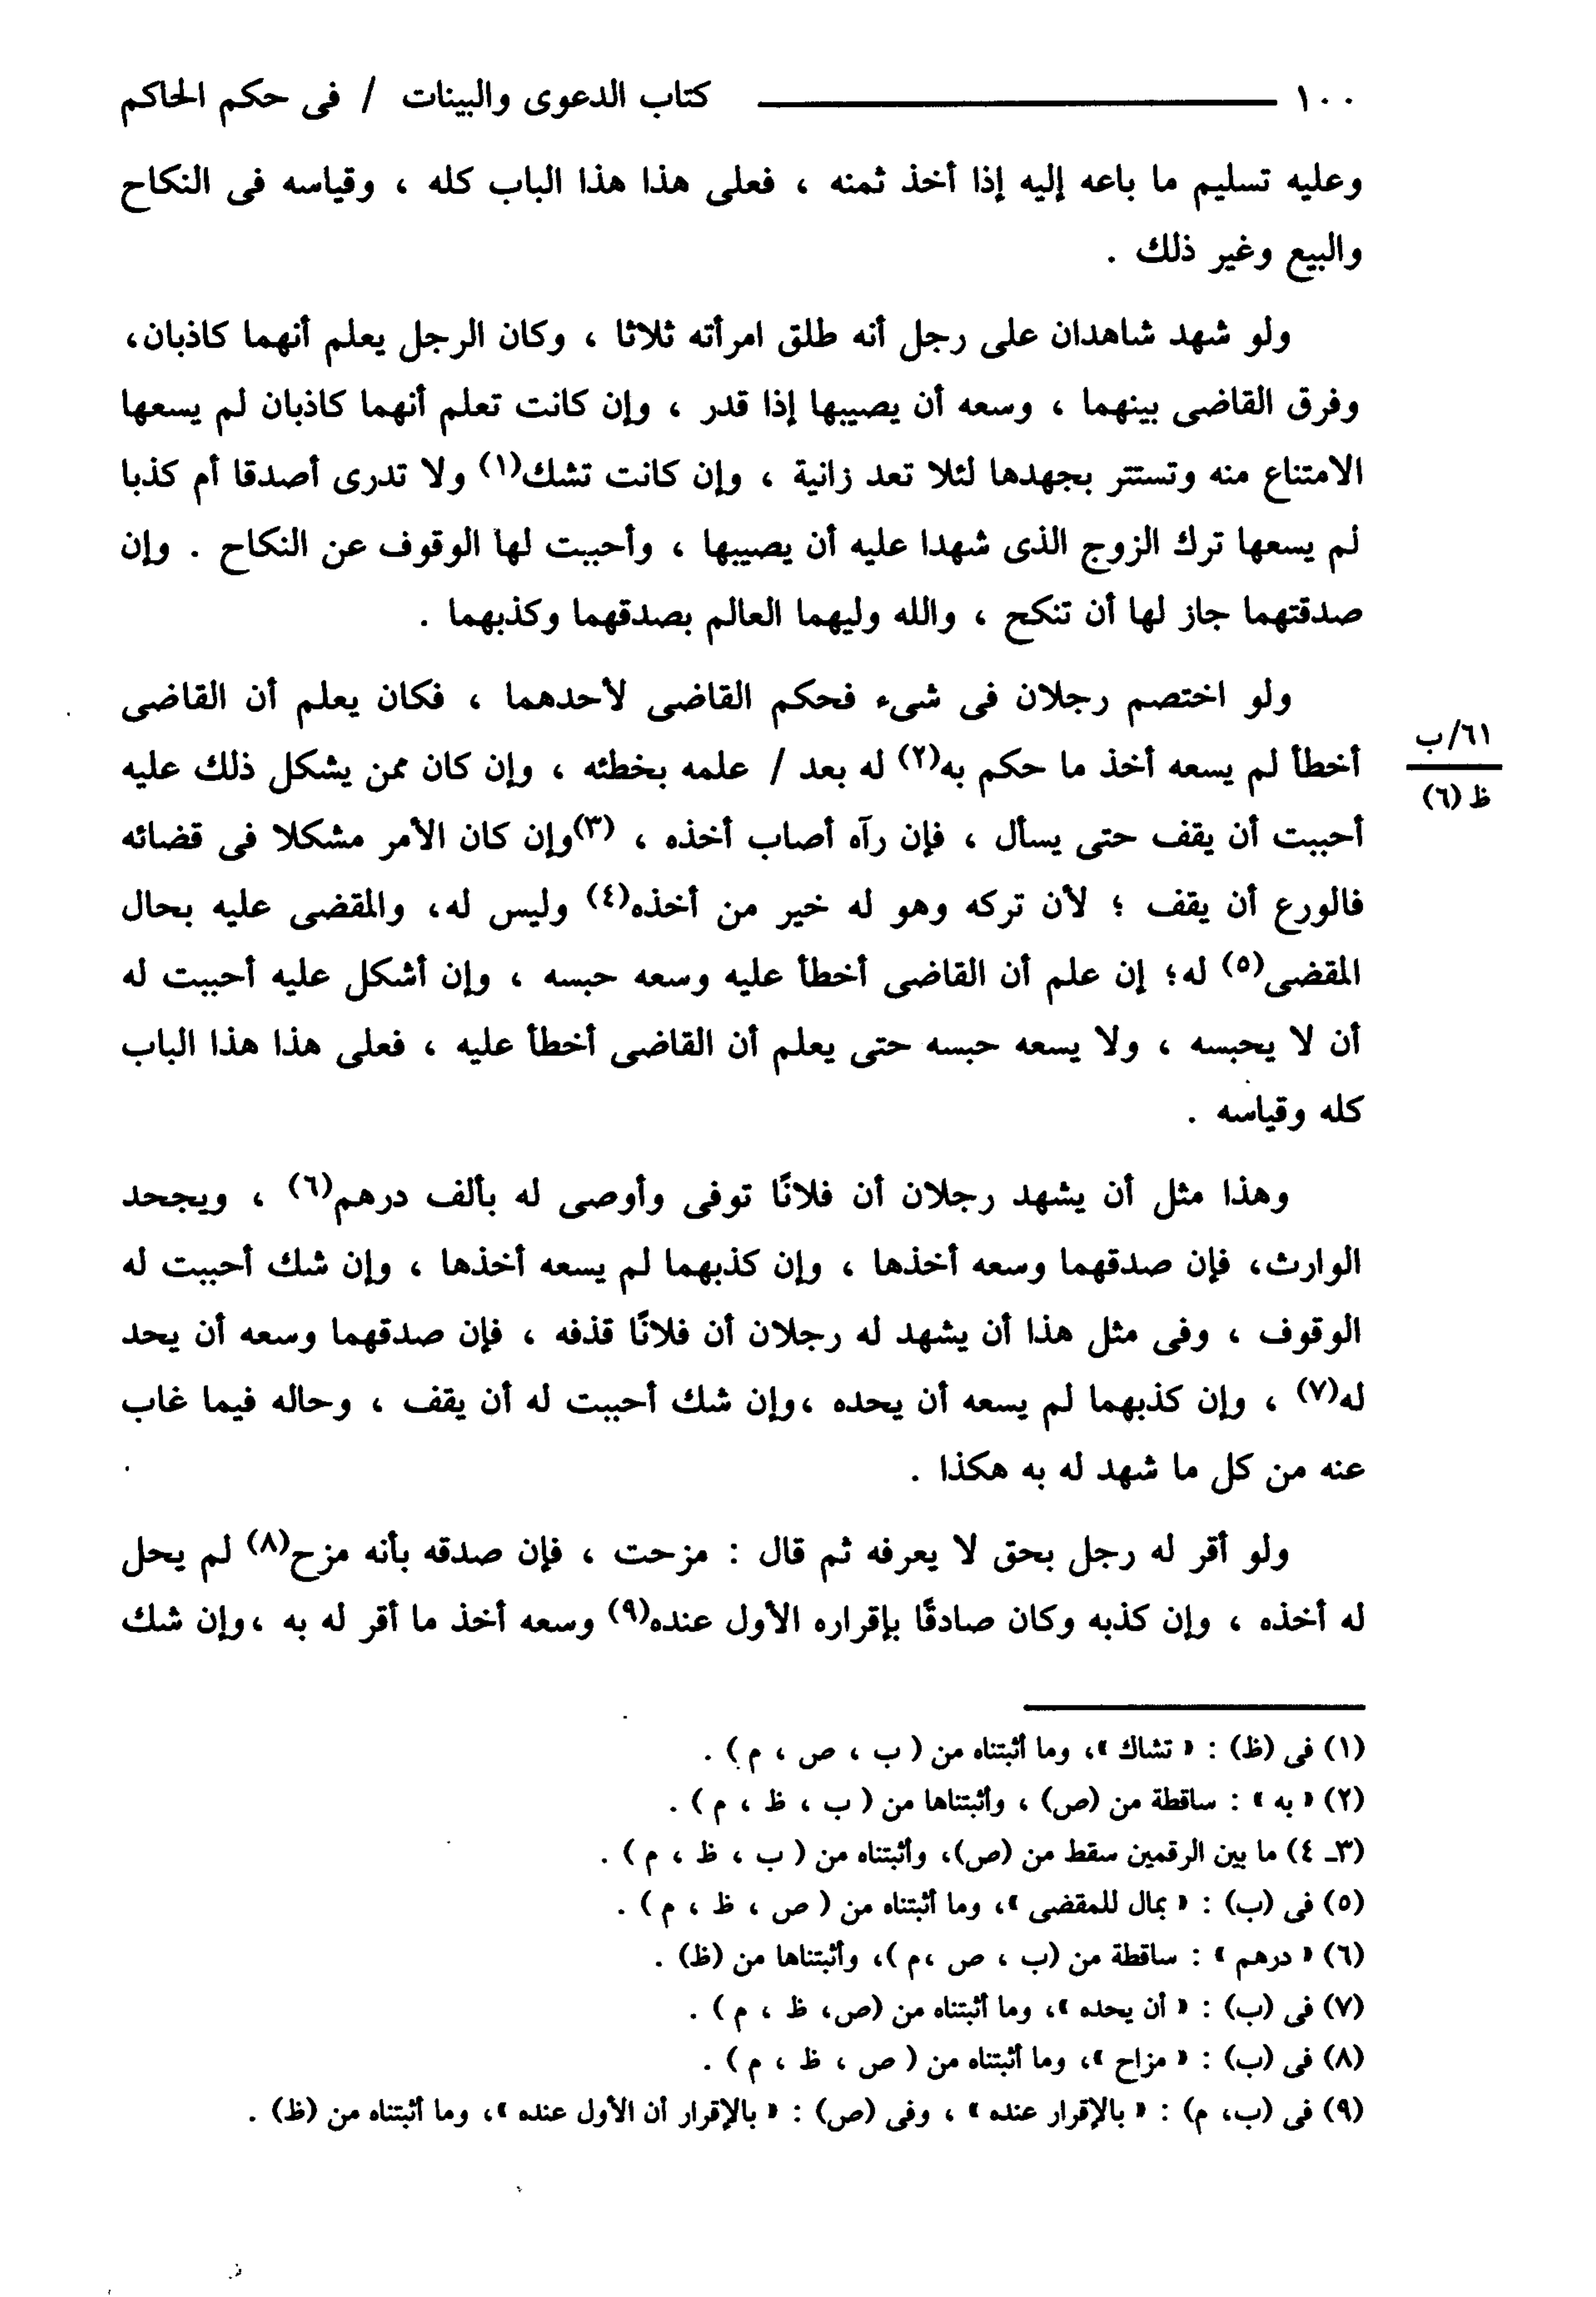 ١٠٠ ـــــــــــــــــ كتاب الدعوى والبينات / فى حكم الحاكم
وعليه تسليم ما باعه إليه إذا أخذ ثمنه ، فعلى هذا هذا الباب كله ، وقياسه فى النكاح
والبيع وغير ذلك .
ولو شهد شاهدان على رجل أنه طلق امرأته ثلاثا ، وكان الرجل يعلم أنهما كاذبان،
وفرق القاضى بينهما ، وسعه أن يصيبها إذا قدر ، وإن كانت تعلم أنهما كاذبان لم يسعها
الامتناع منه وتستتر بجهدها لئلا تعد زانية ، وإن كانت تشك(١) ولا تدرى أصدقا أم كذبا
لم يسعها ترك الزوج الذى شهدا عليه أن يصيبها ، وأحببت لها الوقوف عن النكاح . وإن
صدقتهما جاز لها أن تنكح ، والله وليهما العالم بصدقهما وكذبهما .
ولو اختصم رجلان فى شىء فحكم القاضى لأحدهما ، فكان يعلم أن القاضى
أخطأ لم يسعه أخذ ما حكم به(٢) له بعد / علمه بخطئه ، وإن كان ممن يشكل ذلك عليه
٦١/ب
ظ (٦)
أحببت أن يقف حتى يسأل ، فإن رآه أصاب أخذه ، (٣)وإن كان الأمر مشكلا فى قضائه
فالورع أن يقف ؛ لأن تركه وهو له خير من أخذه(٤) وليس له، والمقضى عليه بحال
المقضى(٥) له؛ إن علم أن القاضى أخطأ عليه وسعه حبسه ، وإن أشكل عليه أحببت له
أن لا يحبسه ، ولا يسعه حبسه حتى يعلم أن القاضى أخطأ عليه ، فعلى هذا هذا الباب
كله وقياسه .
وهذا مثل أن يشهد رجلان أن فلانًا توفى وأوصى له بألف درهم(٦) ، ويجحد
الوارث، فإن صدقهما وسعه أخذها ، وإن كذبهما لم يسعه أخذها ، وإن شك أحببت له
الوقوف ، وفى مثل هذا أن يشهد له رجلان أن فلانًا قذفه ، فإن صدقهما وسعه أن يحد
له(٧) ، وإن كذبهما لم يسعه أن يحده ،وإن شك أحببت له أن يقف ، وحاله فيما غاب
عنه من كل ما شهد له به هكذا .
ولو أقر له رجل بحق لا يعرفه ثم قال : مزحت ، فإن صدقه بأنه مزح(٨) لم يحل
له أخذه ، وإن كذبه وكان صادقًا بإقراره الأول عنده(٩) وسعه أخذ ما أقر له به ،وإن شك
(١) فى (ظ) : « تشاك »، وما أثبتناه من ( ب ، ص ، م ) .
(٢) « به » : ساقطة من (ص) ، وأثبتناها من ( ب ، ظ ، م ) .
(٣ـ ٤) ما بين الرقمين سقط من (ص)، وأثبتناه من ( ب ، ظ ، م ) .
(٥) فى (ب) : « بمال للمقضى »، وما أثبتناه من ( ص ، ظ ، م ) .
(٦) « درهم » : ساقطة من (ب ، ص ،م )، وأثبتناها من (ظ) .
(٧) فى (ب) : « أن يحده »، وما أثبتناه من (ص، ظ ، م ) .
(٨) فى (ب) : « مزاح »، وما أثبتناه من ( ص ، ظ ، م ) .
(٩) فى (ب، م) : « بالإقرار عنده » ، وفى (ص) : « بالإقرار أن الأول عنده »، وما أثبتناه من (ظ) .